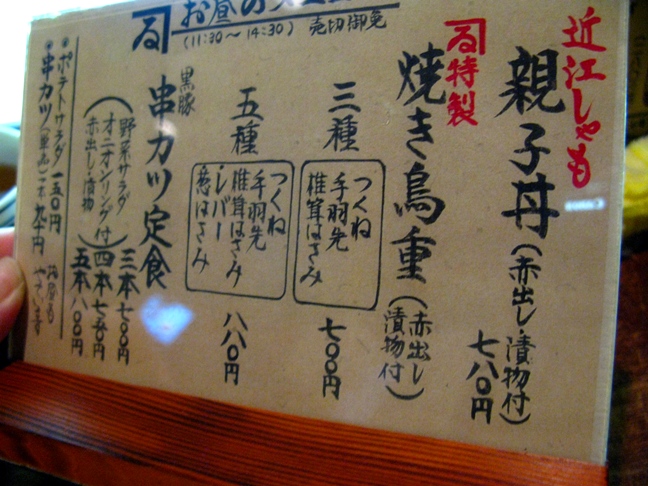 お昼の
(11:30〜14:30) 売切御免
近江しゃも
親子丼(赤出し・漬物付)
七八〇円
る特製
焼き鳥重(赤出し・漬物付)
三種
つくね
手羽先
椎茸はさみ
七〇〇円
五種
つくね
手羽先
椎茸はさみ
・レバー
葱はさみ
八八〇円
黒豚
串カツ定食
(野菜サラダ
オニオンリング付
赤出し・漬物)
三本七〇〇円
四本七五〇円
五本八〇〇円
・ポテトサラダ 一五〇円
・串カツ(単品)